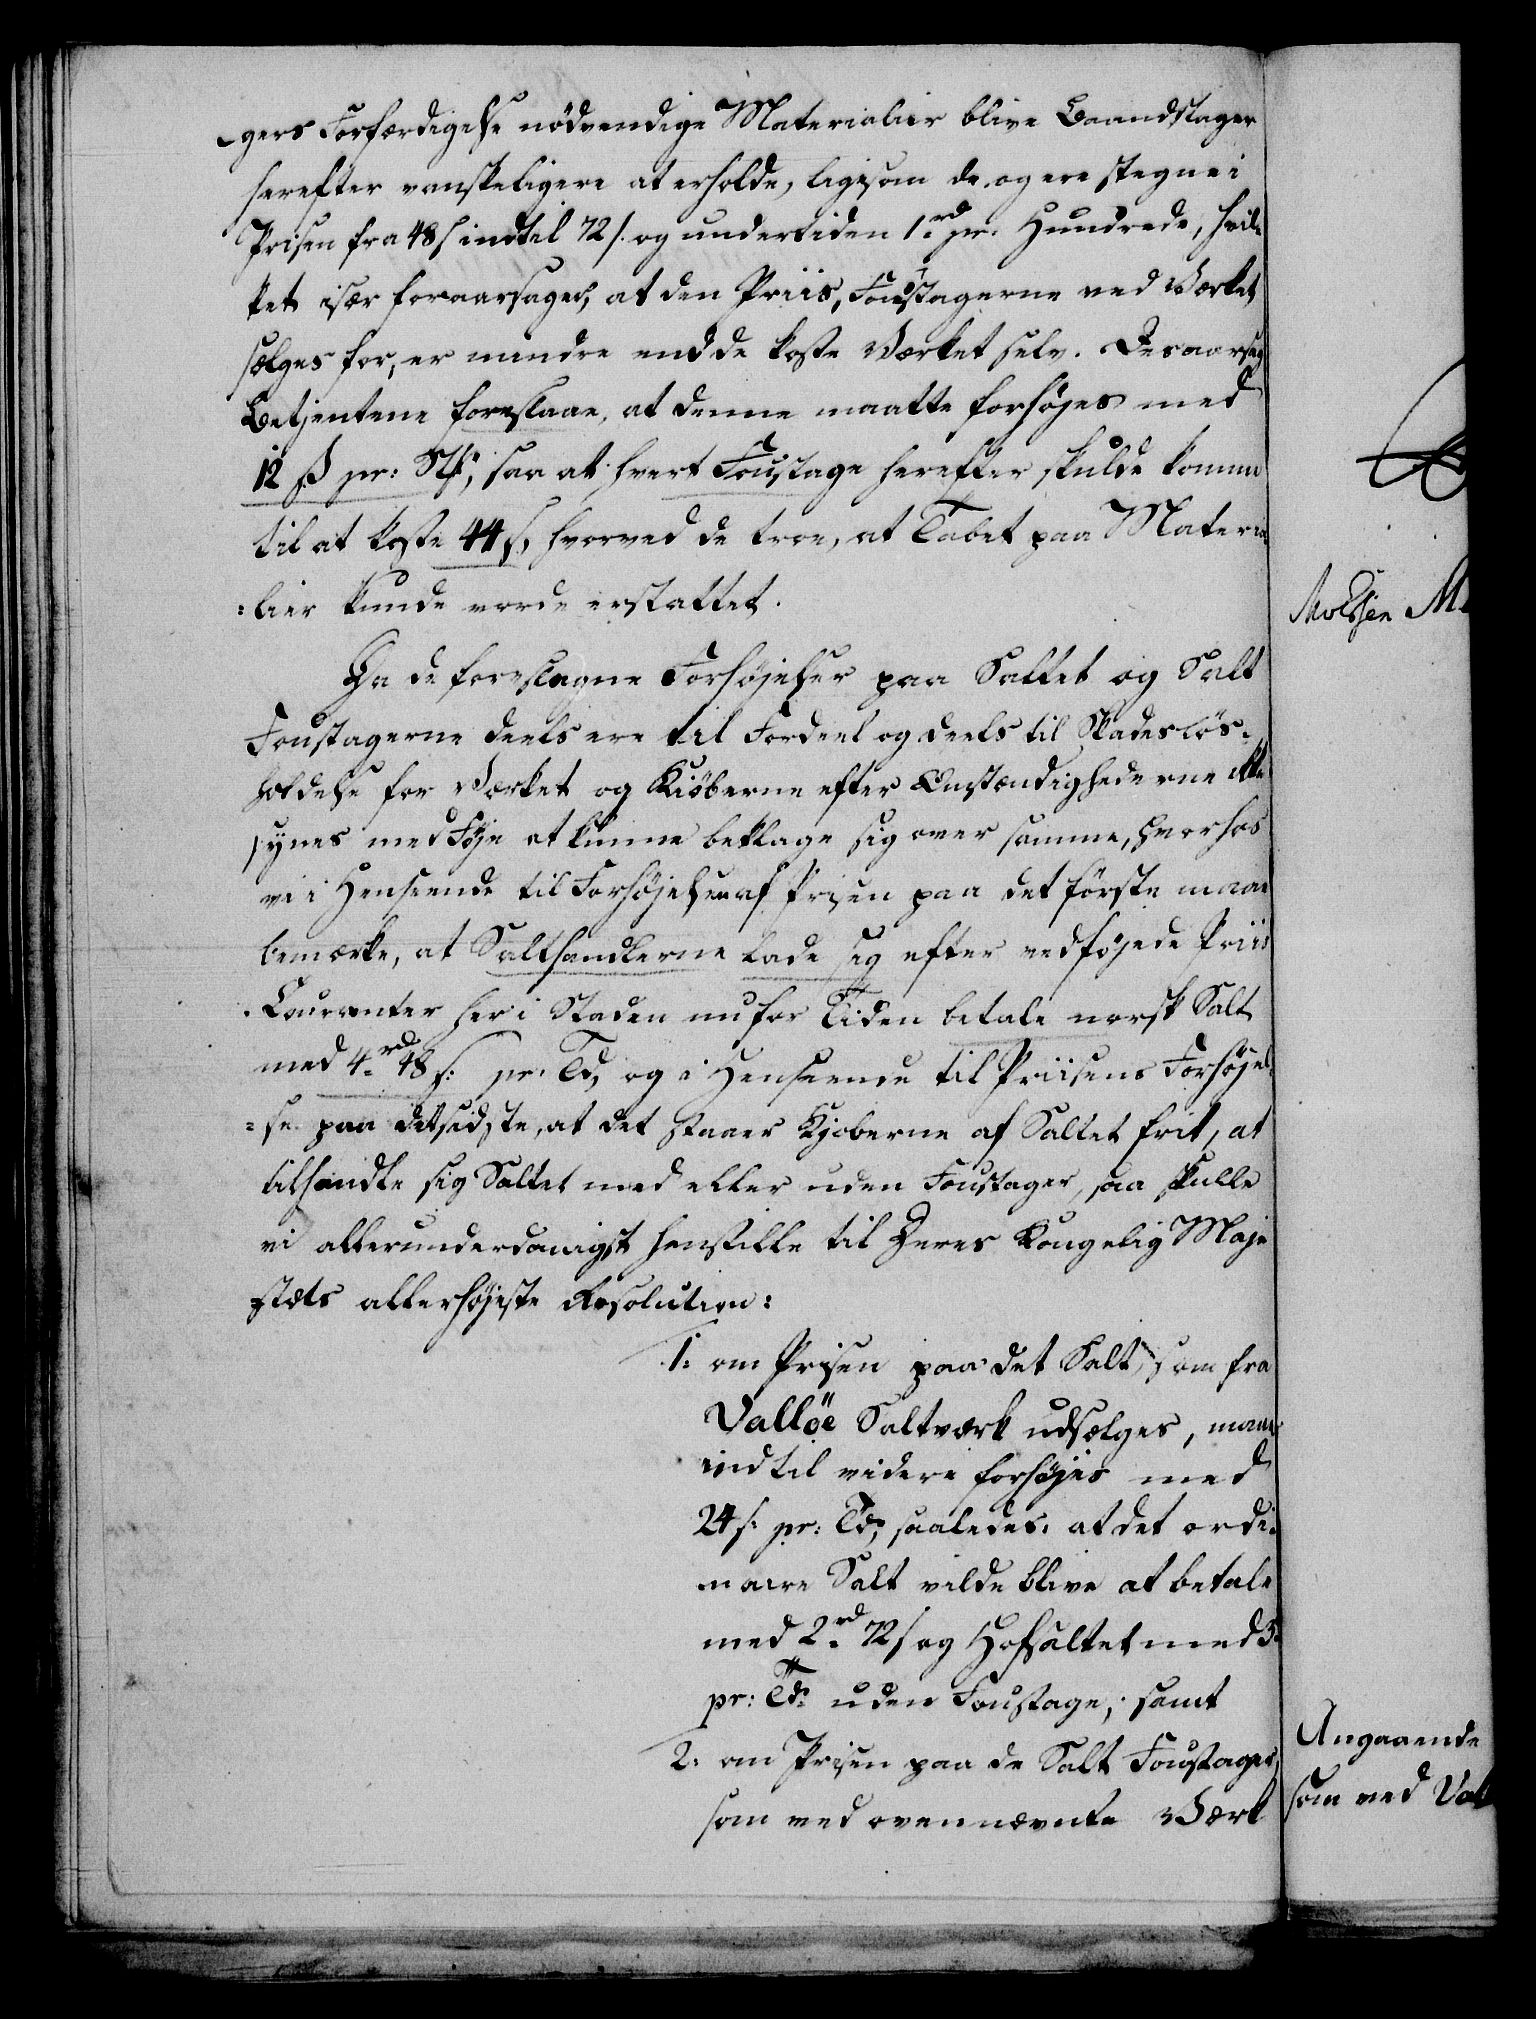 -gers Forfærdigelse nödvendige Materialier blive Baandstager
herefter vanskeligere at erholde, ligesom de og ere stegne i
Prisen fra 48 s indtil 72 s. og undertiden 1 rd pr. Hundrede, hvil
ket især foraarsages, at den Priis, Foustagerne ved Værket
sælges for, er mindre end de koste Værket selv. Desaarsag
Betjentene foreslaae, at denne maatte forhøjes med
12 ß pr: St:, saa at hvert Foustage herefter skulde komme
til at koste 44 s, hvorved de troe, at Tabet paa Materia
:lier kunde vorde erstattet.
Da de foreslagne Forhøjelser paa Saltet og Salt
Foustagerne deels ere til Fordeel og deels til Skadeslös-
holdelse for Værket og Kiöberne efter Omstændighederne ikke
synes med Föje at kunne beklage sig over samme, hvorhos
vi i Henseende til Forhøjelsen af Prisen paa det förste maae
bemærke, at Salthandlerne lade sig efter vedföjede Priis
Couranter her i Staden nu for Tiden betale norsk Salt
med 4 rd 48 s: pr. Td, og i Henseende til Priisens Forhøjel
=se paa det sidste, at det staaer Kjøberne af Saltet frit, at
tilhandle sig Saltet med eller uden Foustager, saa skulle
vi allerunderdanigst henstille til Deres Kongelig Maje
stæts allerhøjeste Resolution:
1: om Prisen paa det Salt, som fra
Valløe Saltværk udsælges, maae
indtil videre forhøjes med
24 s: pr: Td, saaledes: at det ordi:
naire Salt vilde blive at betale
med 2 rd 72 s og Hofsaltet med 3
pr: Td: uden Foustage, samt
2: om Prisen paa de Salt Foustager,
som ved ovennævnte Værk
Angaaende
som ved Val